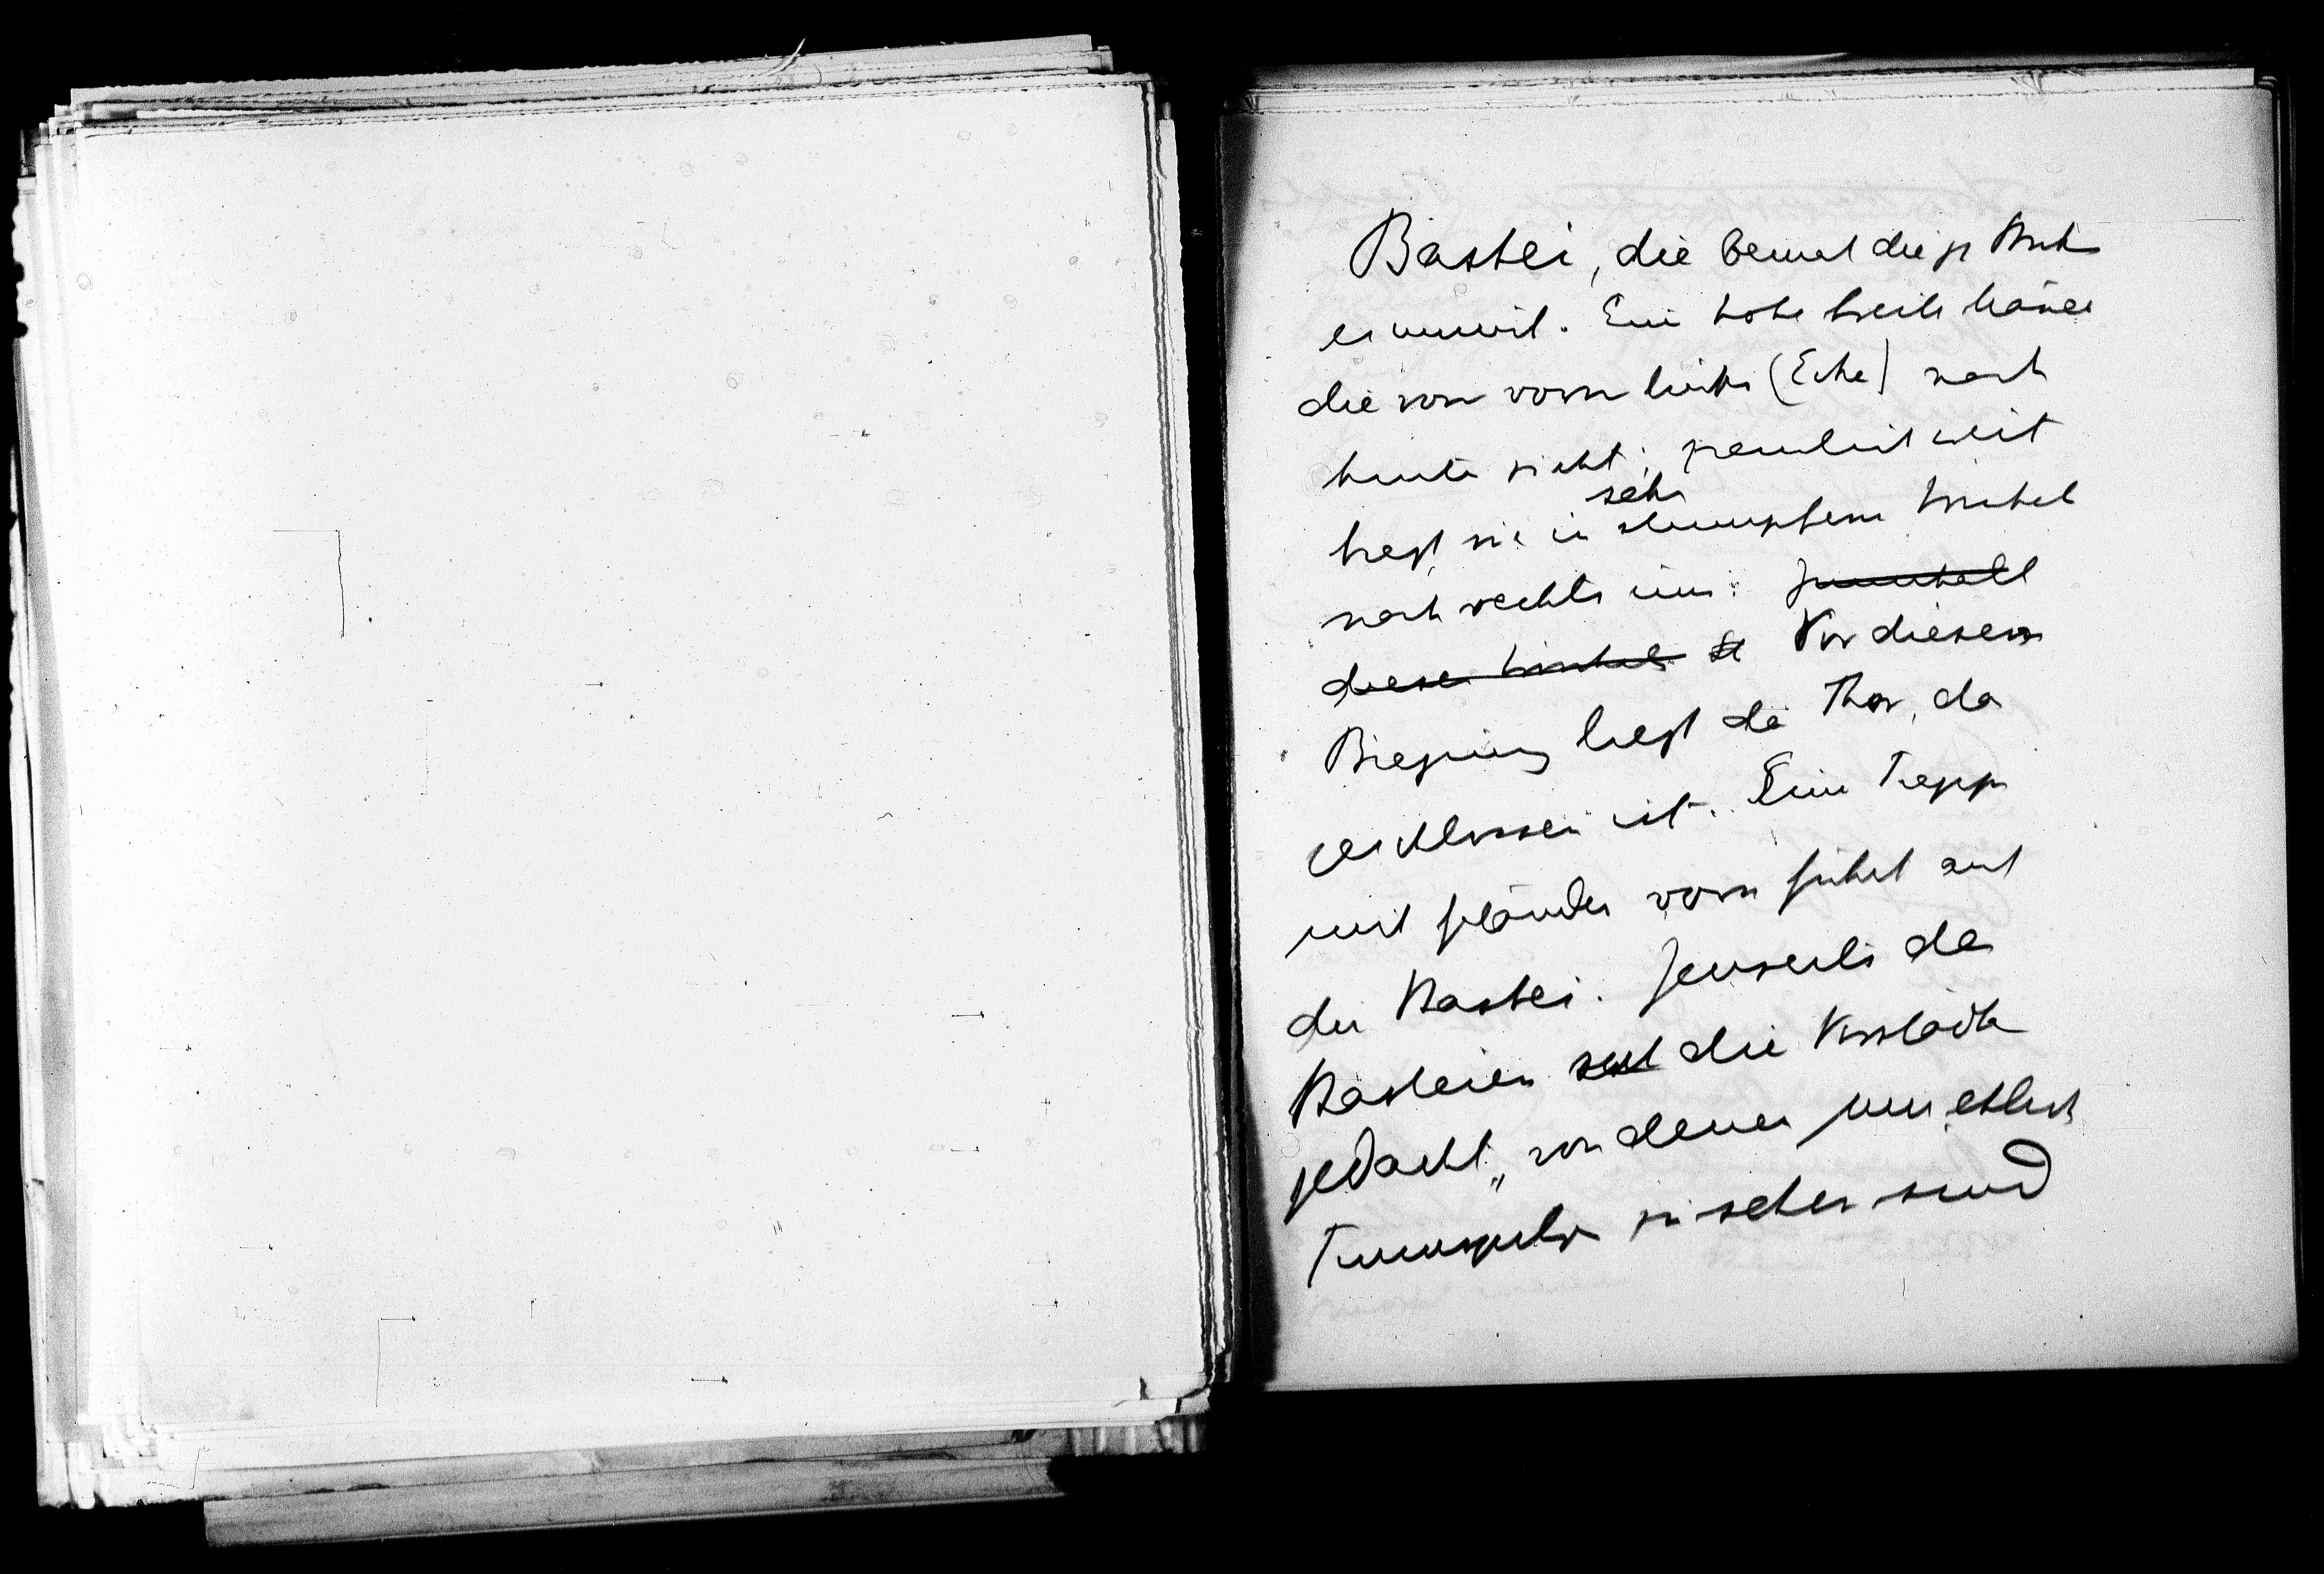 Bastei, die
Eine hohe breite Mauer
die von vorn links (Ecke) nach
hinten zieht; ziemlich weit
biegt sie in sehr stumpfem Winkel
nach rechts um: Innerhalb
dieses Winkels st Vor diesem
Biegung liegt das Thor, das
verschlossen ist. Eine Treppe
mit Geländer vorn führt auf
die Bastei. Jenseits der
Basteien sind die Vorstädte
gedacht, von denen nur etliche
zu sehen sind